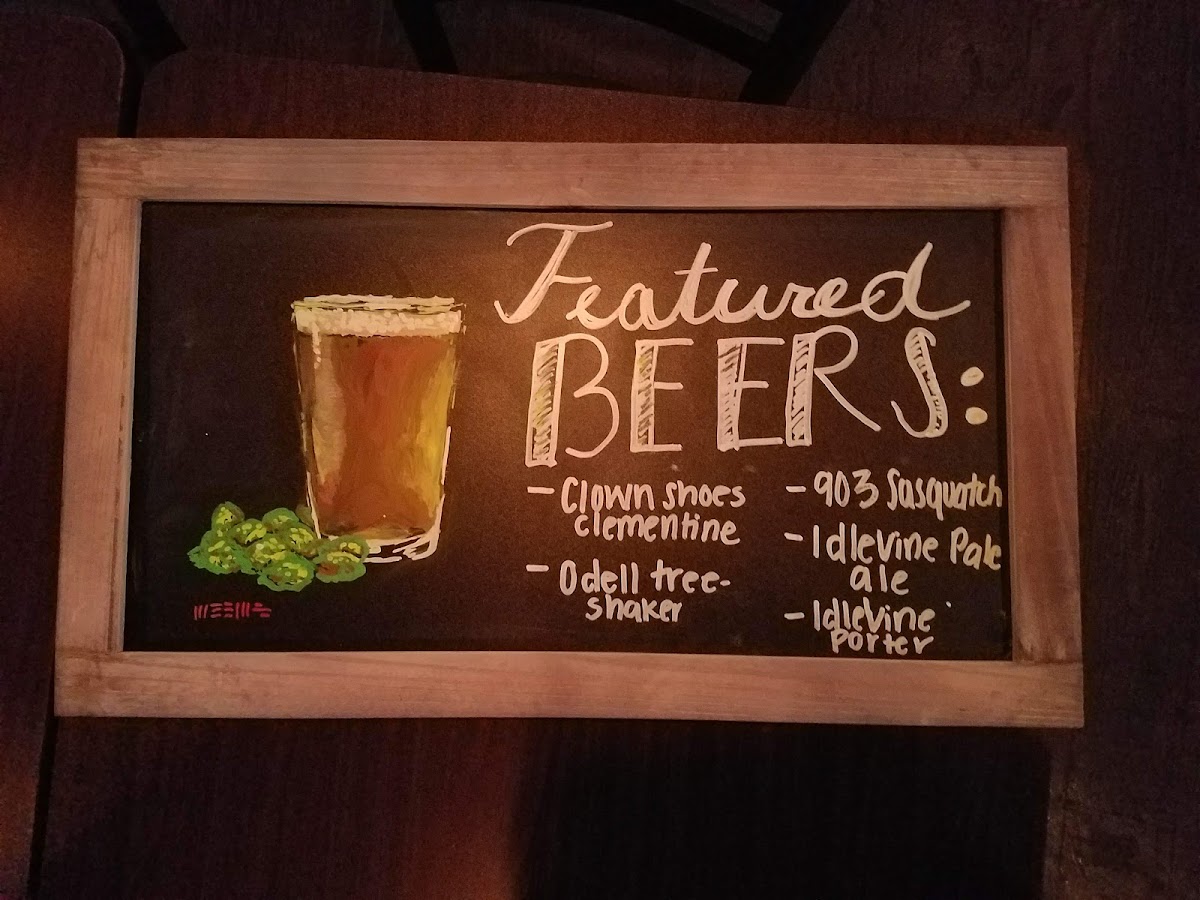 Featured
BEERS:
- Clown shoes
clementine
- Odell tree-
shaker
- 903 Sasquatch
- Idlevine Pale
ale
- Idlevine
porter